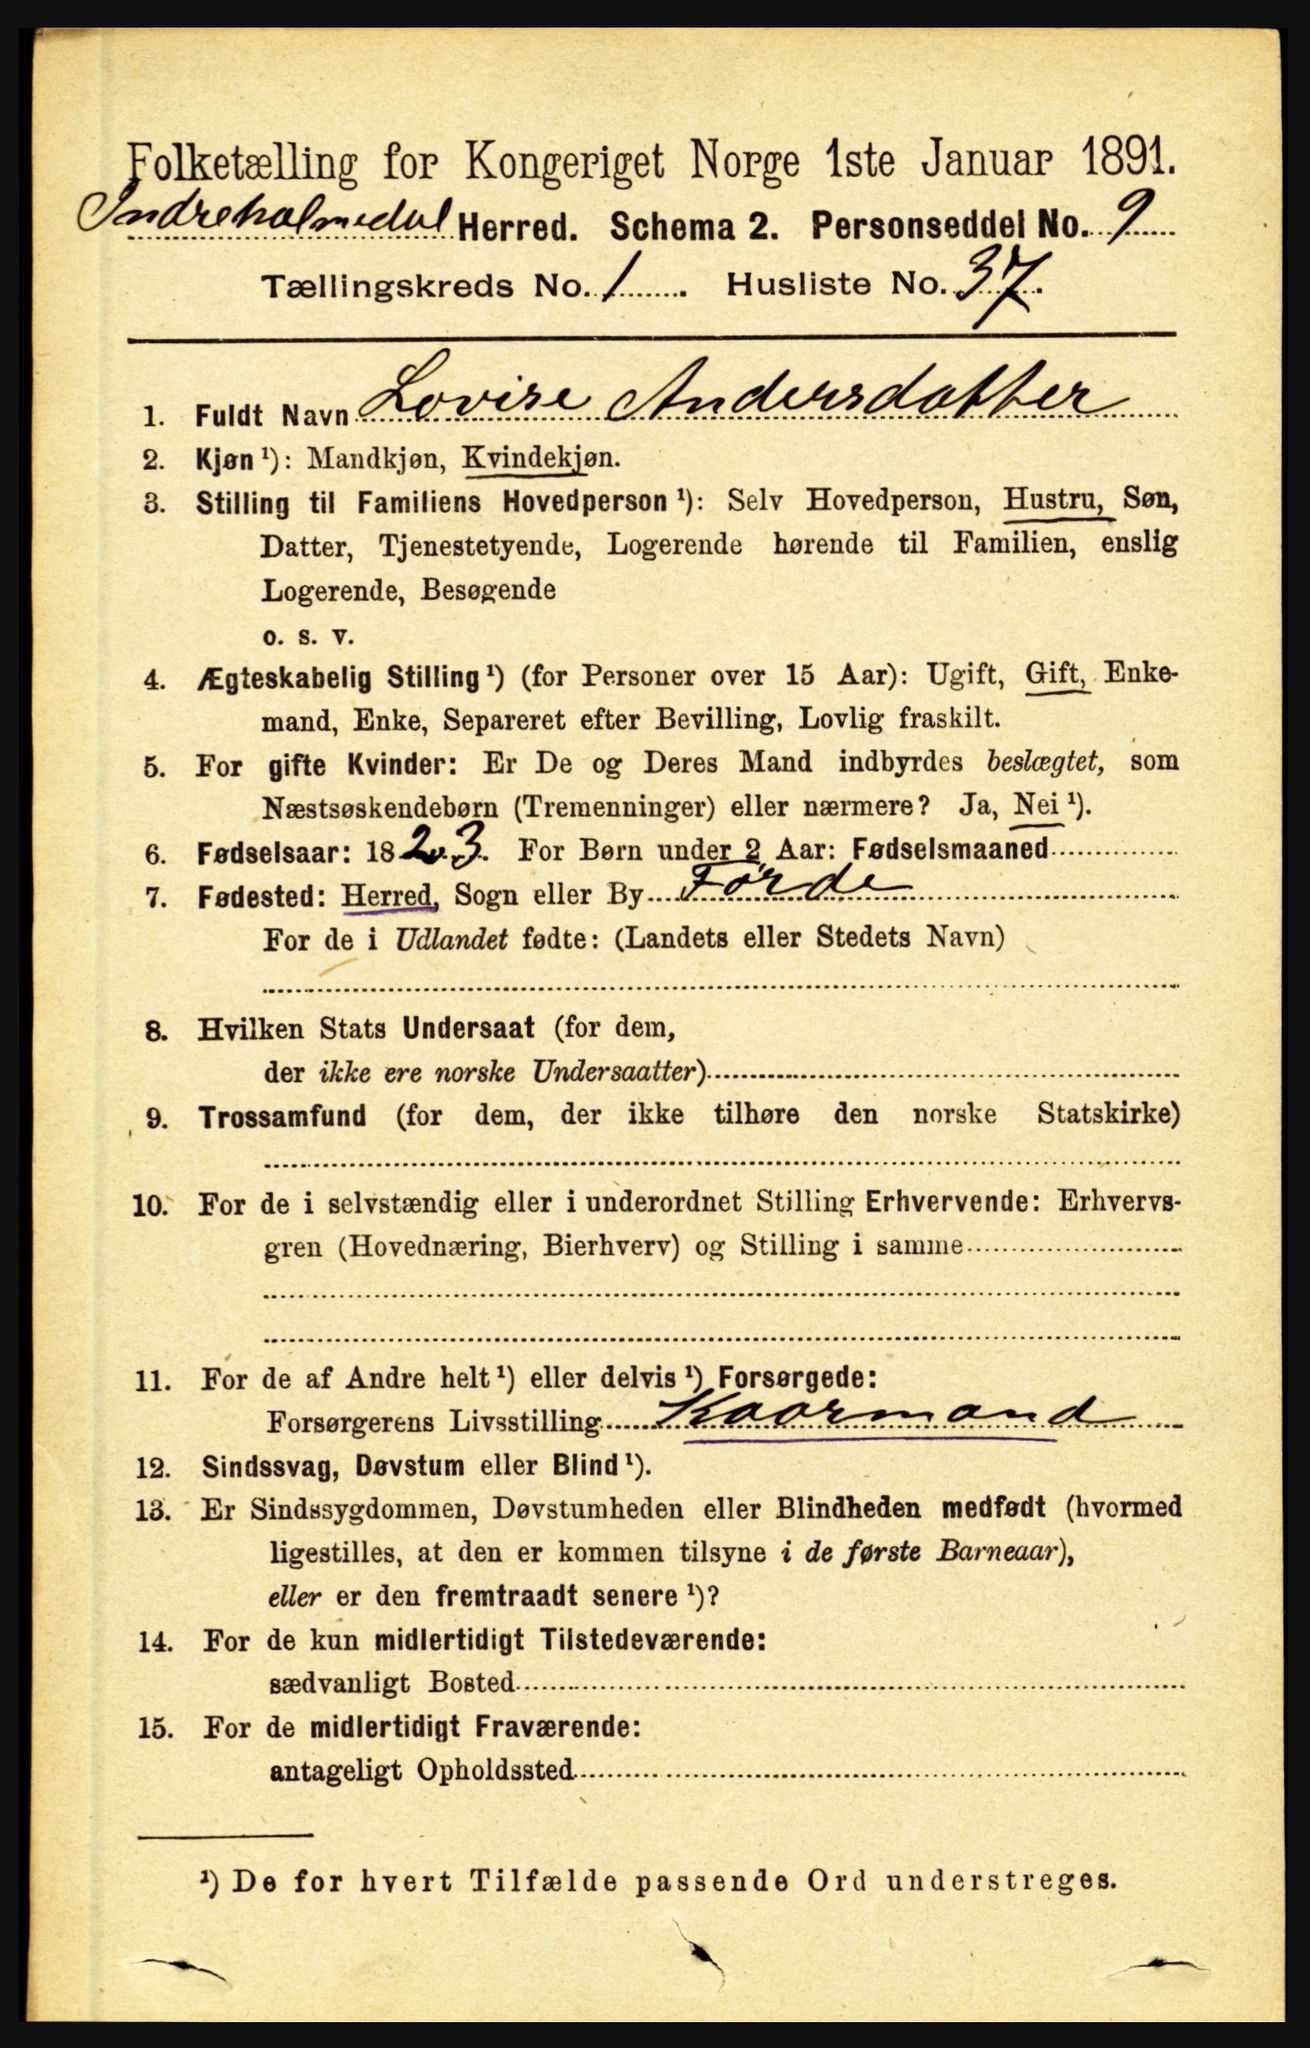 Folketælling for Kongeriget Norge 1ste Januar 1891.
Indreholmedal Herred. Schema 2. Personseddel No. 9
Tællingskreds No. 1. Husliste No. 37.
1. Fuldt Navn Lovise Andersdatter
2. Kjøn ¹): Mandkjøn, Kvindekjøn.
3. Stilling til Familiens Hovedperson ¹): Selv Hovedperson, Hustru, Søn,
Datter, Tjenestetyende, Logerende hørende til Familien, enslig
Logerende, Besøgende
o. s. v.
4. Ægteskabelig Stilling ¹) (for Personer over 15 Aar): Ugift, Gift, Enke-
mand, Enke, Separeret efter Bevilling, Lovlig fraskilt.
5. For gifte Kvinder: Er De og Deres Mand indbyrdes beslægtet, som
Næstsøskendebørn (Tremenninger) eller nærmere? Ja, Nei ¹).
6. Fødselsaar: 1823. For Børn under 2 Aar: Fødselsmaaned
7. Fødested: Herred, Sogn eller By Førde
For de i Udlandet fødte: (Landets eller Stedets Navn)
8. Hvilken Stats Undersaat (for dem,
der ikke ere norske Undersaatter)
9. Trossamfund (for dem, der ikke tilhøre den norske Statskirke)
10. For de i selvstændig eller i underordnet Stilling Erhvervende: Erhvervs-
gren (Hovednæring, Bierhverv) og Stilling i samme
11. For de af Andre helt ¹) eller delvis ¹) Forsørgede:
Forsørgerens Livsstilling Kaarmand
12. Sindssvag, Døvstum eller Blind ¹).
13. Er Sindssygdommen, Døvstumheden eller Blindheden medfødt (hvormed
ligestilles, at den er kommen tilsyne i de første Barneaar),
eller er den fremtraadt senere ¹)?
14. For de kun midlertidigt Tilstedeværende:
sædvanligt Bosted
15. For de midlertidigt Fraværende:
antageligt Opholdssted
¹) De for hvert Tilfælde passende Ord understreges.